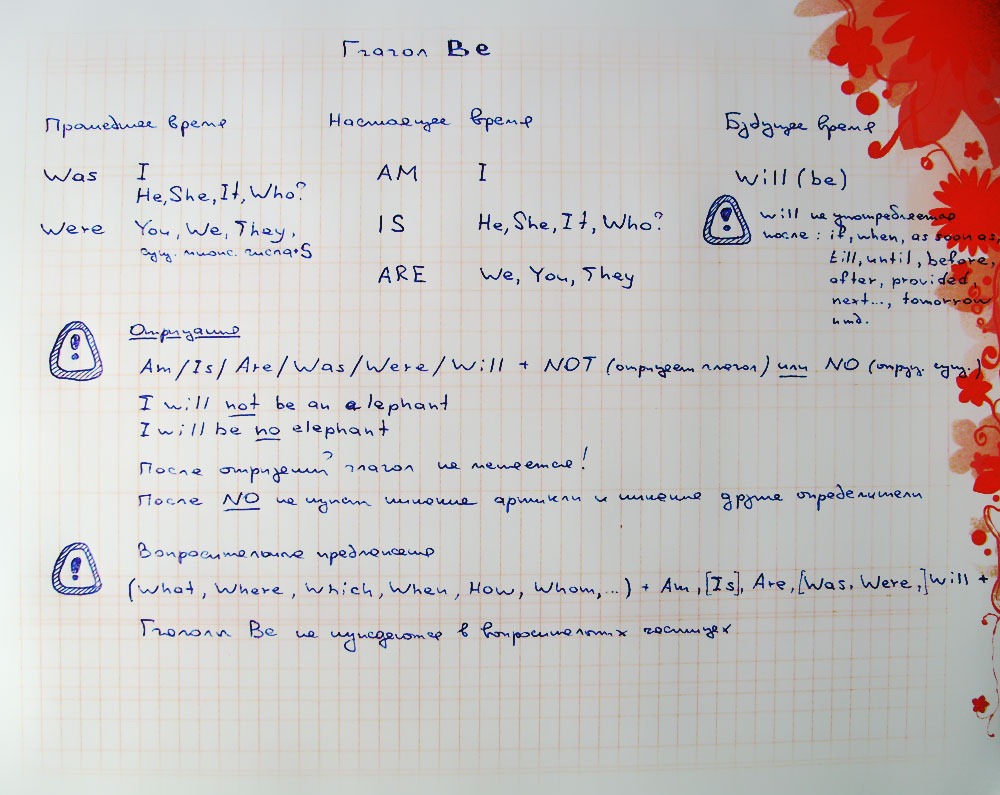 Глагол Be
Прошедшее время Настоящее время Будущее время
Was I AM I Will (be)
He, She, It, Who?
Were You, We, They, IS He, She, It, Who? will не употребляется
сущ. множ. числа+S после: if, when, as soon as,
till, until, before,
ARE We, You, They after, provided,
next..., tomorrow
итд.
Отрицание
Am/Is/Are/Was/Were/Will + NOT (отрицает глагол) или NO (отриц. сущ.)
I will not be an elephant
I will be no elephant
После отрицаний глагол не меняется!
После NO не нужны никакие артикли и никакие другие определители
Вопросительные предложения
(What, Where, Which, When, How, Whom,...) + Am, [Is], Are, [Was, Were,] Will +
Глаголы Be не нуждаются в вопросительных частицах